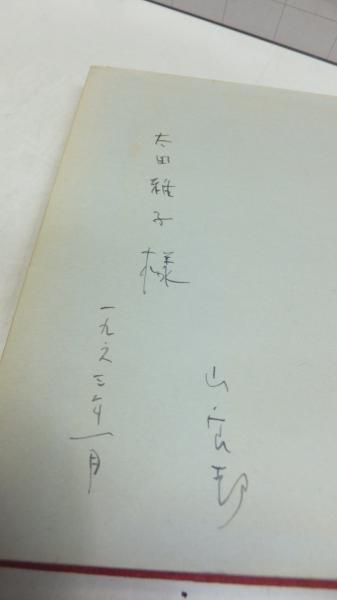 太田雅子様
一九六三年一月